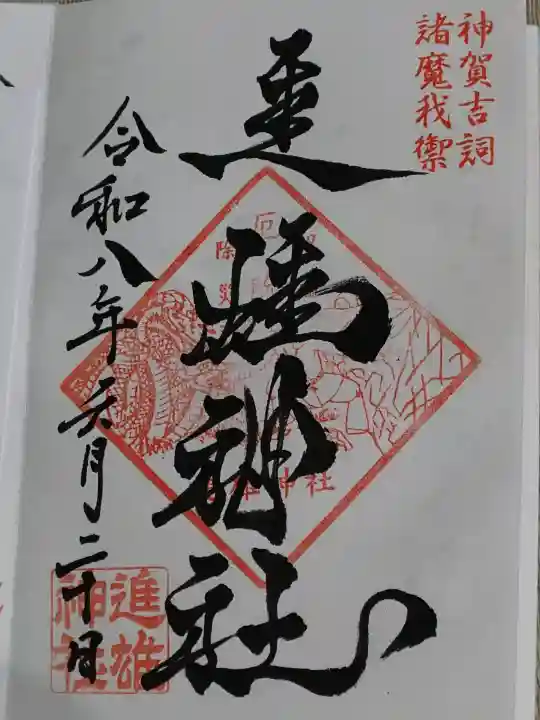 神賀吉詞
諸魔我禦
進雄神社
令和八年 月二十日
厄
除
災
神社
進雄
神社